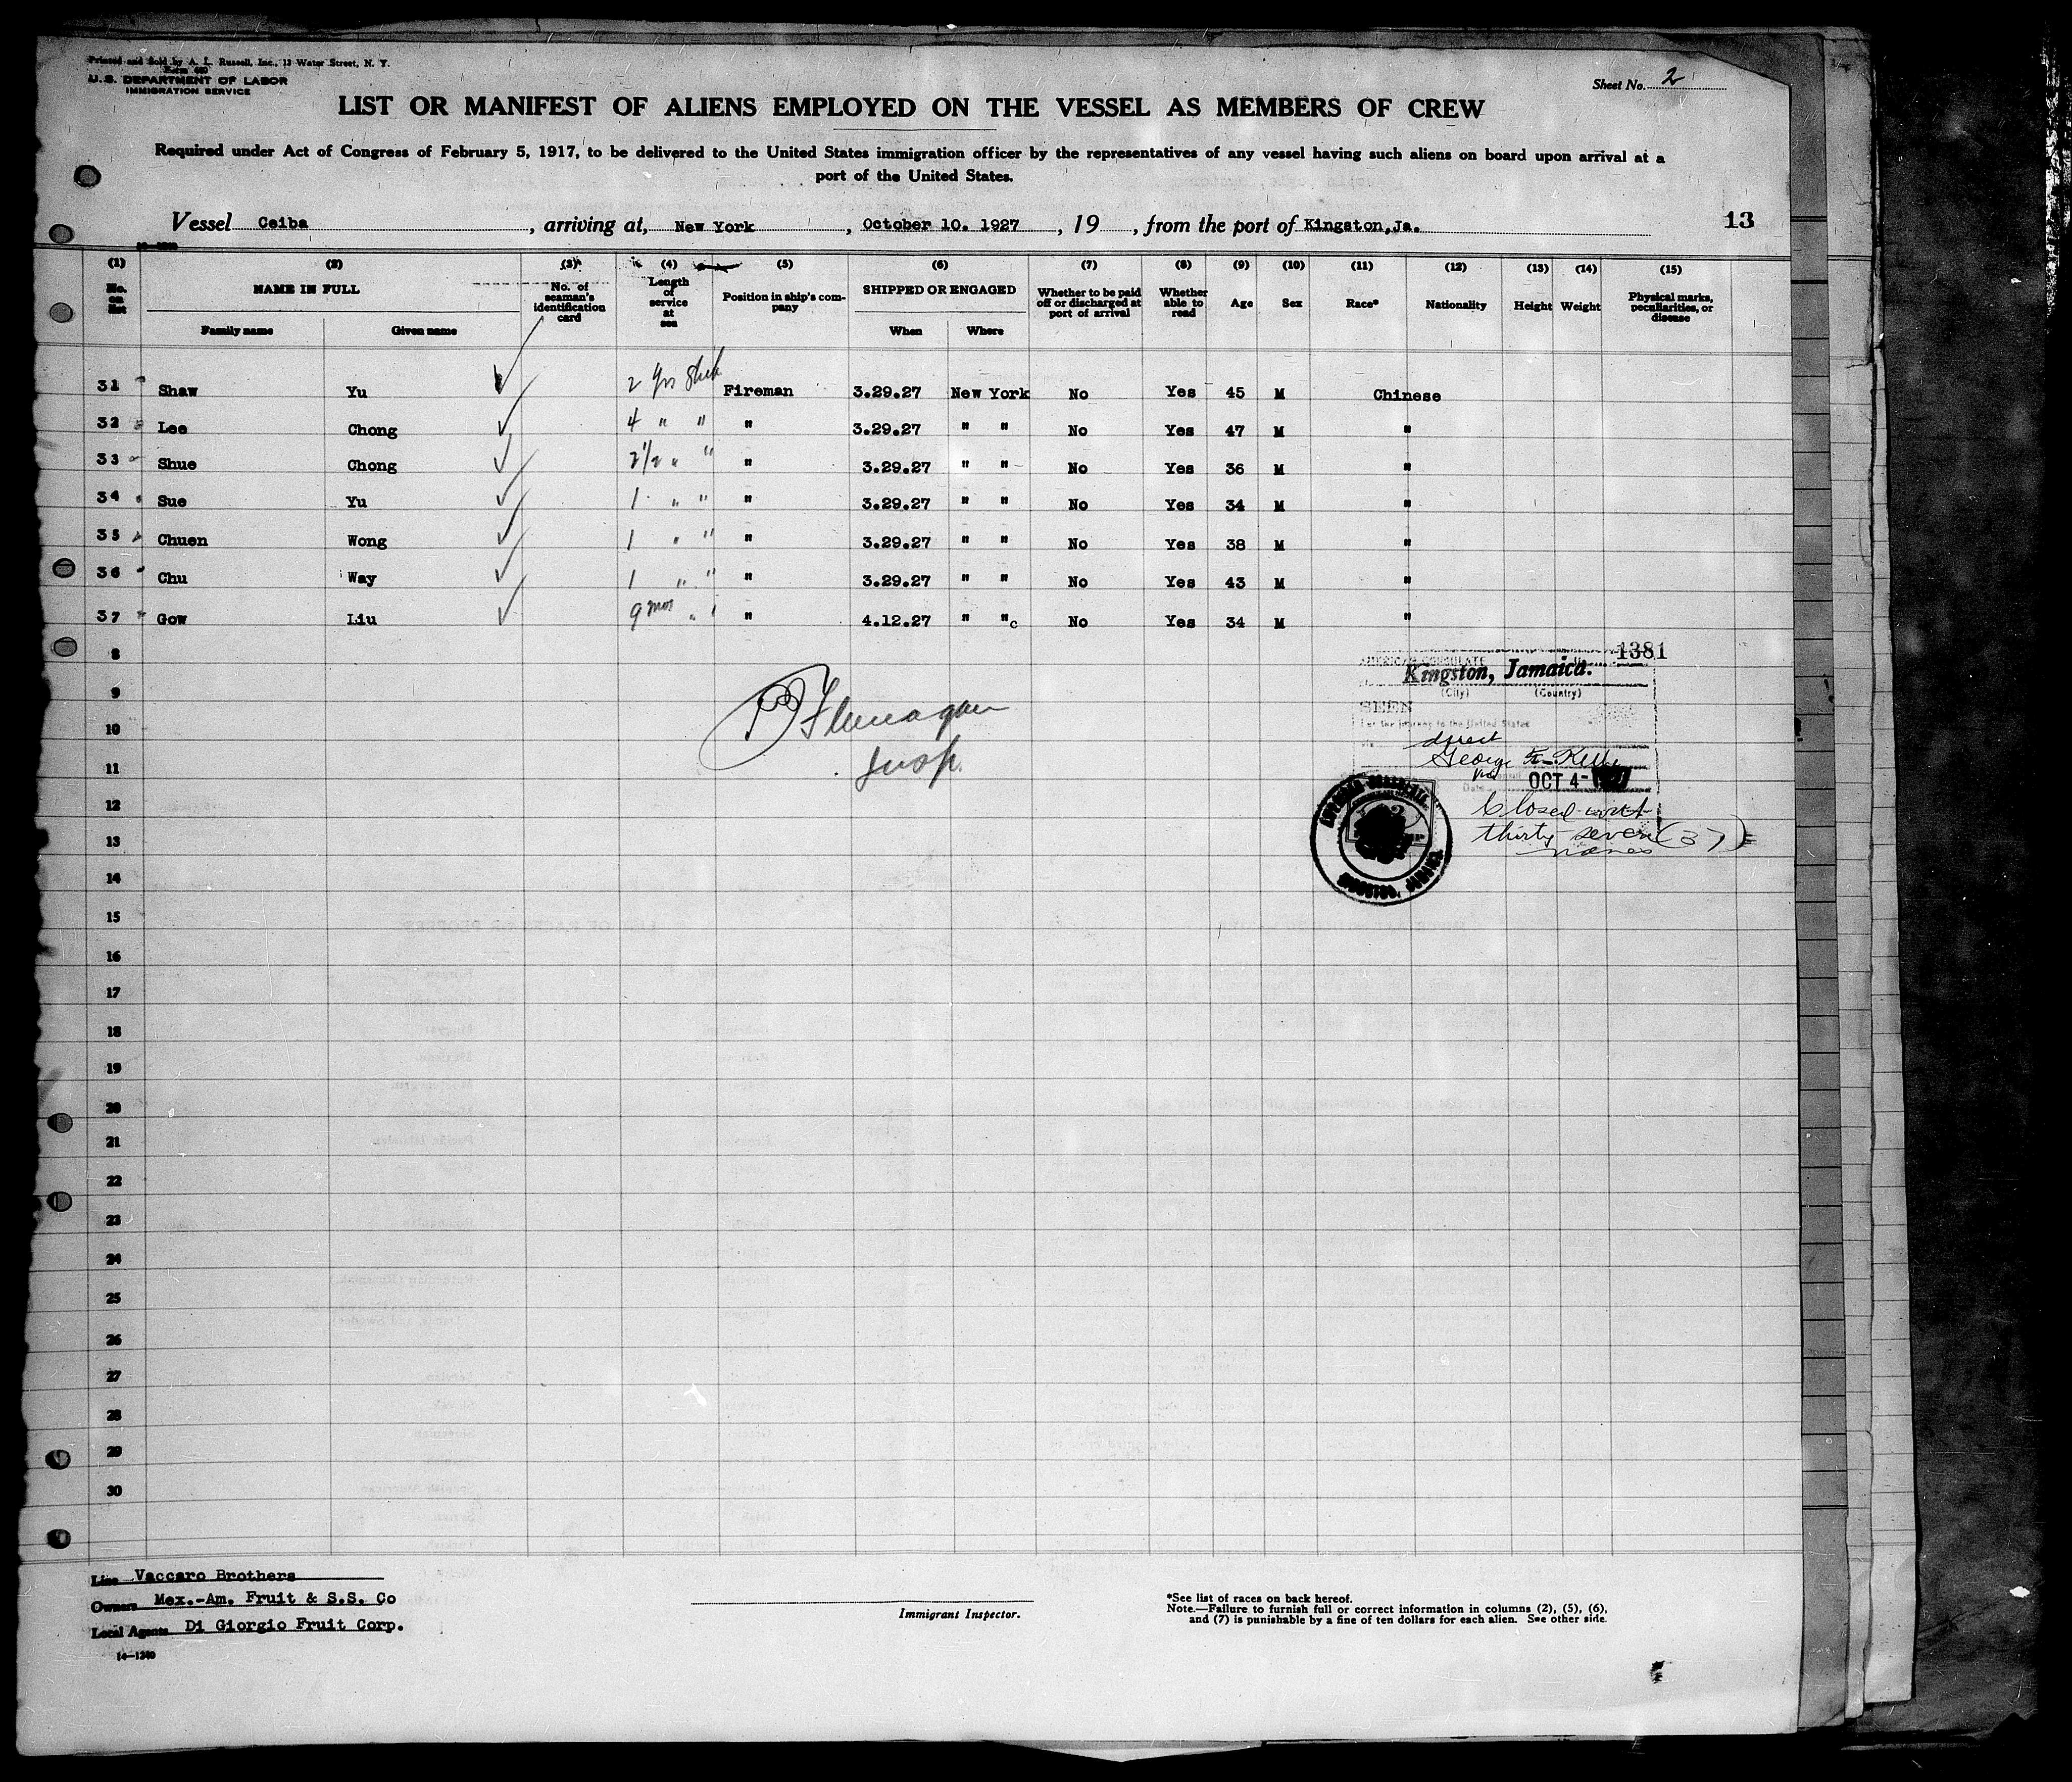 Printed and Sold by A. L. Russell, Inc., 13 Water Street, N. Y.
Form 680
U.S. DEPARTMENT OF LABOR
IMMIGRATION SERVICE
Sheet No. 2
LIST OR MANIFEST OF ALIENS EMPLOYED ON THE VESSEL AS MEMBERS OF CREW
Required under Act of Congress of February 5, 1917, to be delivered to the United States immigration officer by the representatives of any vessel having such aliens on board upon arrival at a
port of the United States.
Vessel Ceiba, arriving at, New York, October 10. 1927, 19, from the port of Kingston,Ja. 13
(1) (2) (3) (4) (5) (6) (7) (8) (9) (10) (11) (12) (13) (14) (15)
No. on list NAME IN FULL Family name Given name No. of seaman's identification card Length of service at sea Position in ship's company SHIPPED OR ENGAGED When Where Whether to be paid off or discharged at port of arrival Whether able to read Age Sex Race* Nationality Height Weight Physical marks, peculiarities, or disease
31 Shaw Yu 2 yrs Fireman 3.29.27 New York No Yes 45 M Chinese
32 Lee Chong 4 " " " 3.29.27 " " No Yes 47 M "
33 Shue Chong 2 1/2 " " " 3.29.27 " " No Yes 36 M "
34 Sue Yu 1 " " " 3.29.27 " " No Yes 34 M "
35 Chuen Wong 1 " " " 3.29.27 " " No Yes 38 M "
36 Chu Way 1 " " " 3.29.27 " " No Yes 43 M "
37 Gow Liu 9 mos " " " 4.12.27 " "c No Yes 34 M "
8
9
10
11
12
13
14
15
16
17
18
19
20
21
22
23
24
25
26
27
28
29
30
Flanagan
Insp.
1381
AMERICAN CONSULATE
Kingston, Jamaica.
(City) (Country)
SEEN
For the journey to the United States
direct
George
Date OCT 4- 1927
Closed with
thirty-seven (37)
names
Line Vaccaro Brothers
Owners Mex.-Am. Fruit & S.S. Co
Local Agents Di Giorgio Fruit Corp.
14—1240
Immigrant Inspector.
*See list of races on back hereof.
Note.—Failure to furnish full or correct information in columns (2), (5), (6),
and (7) is punishable by a fine of ten dollars for each alien. See other side.